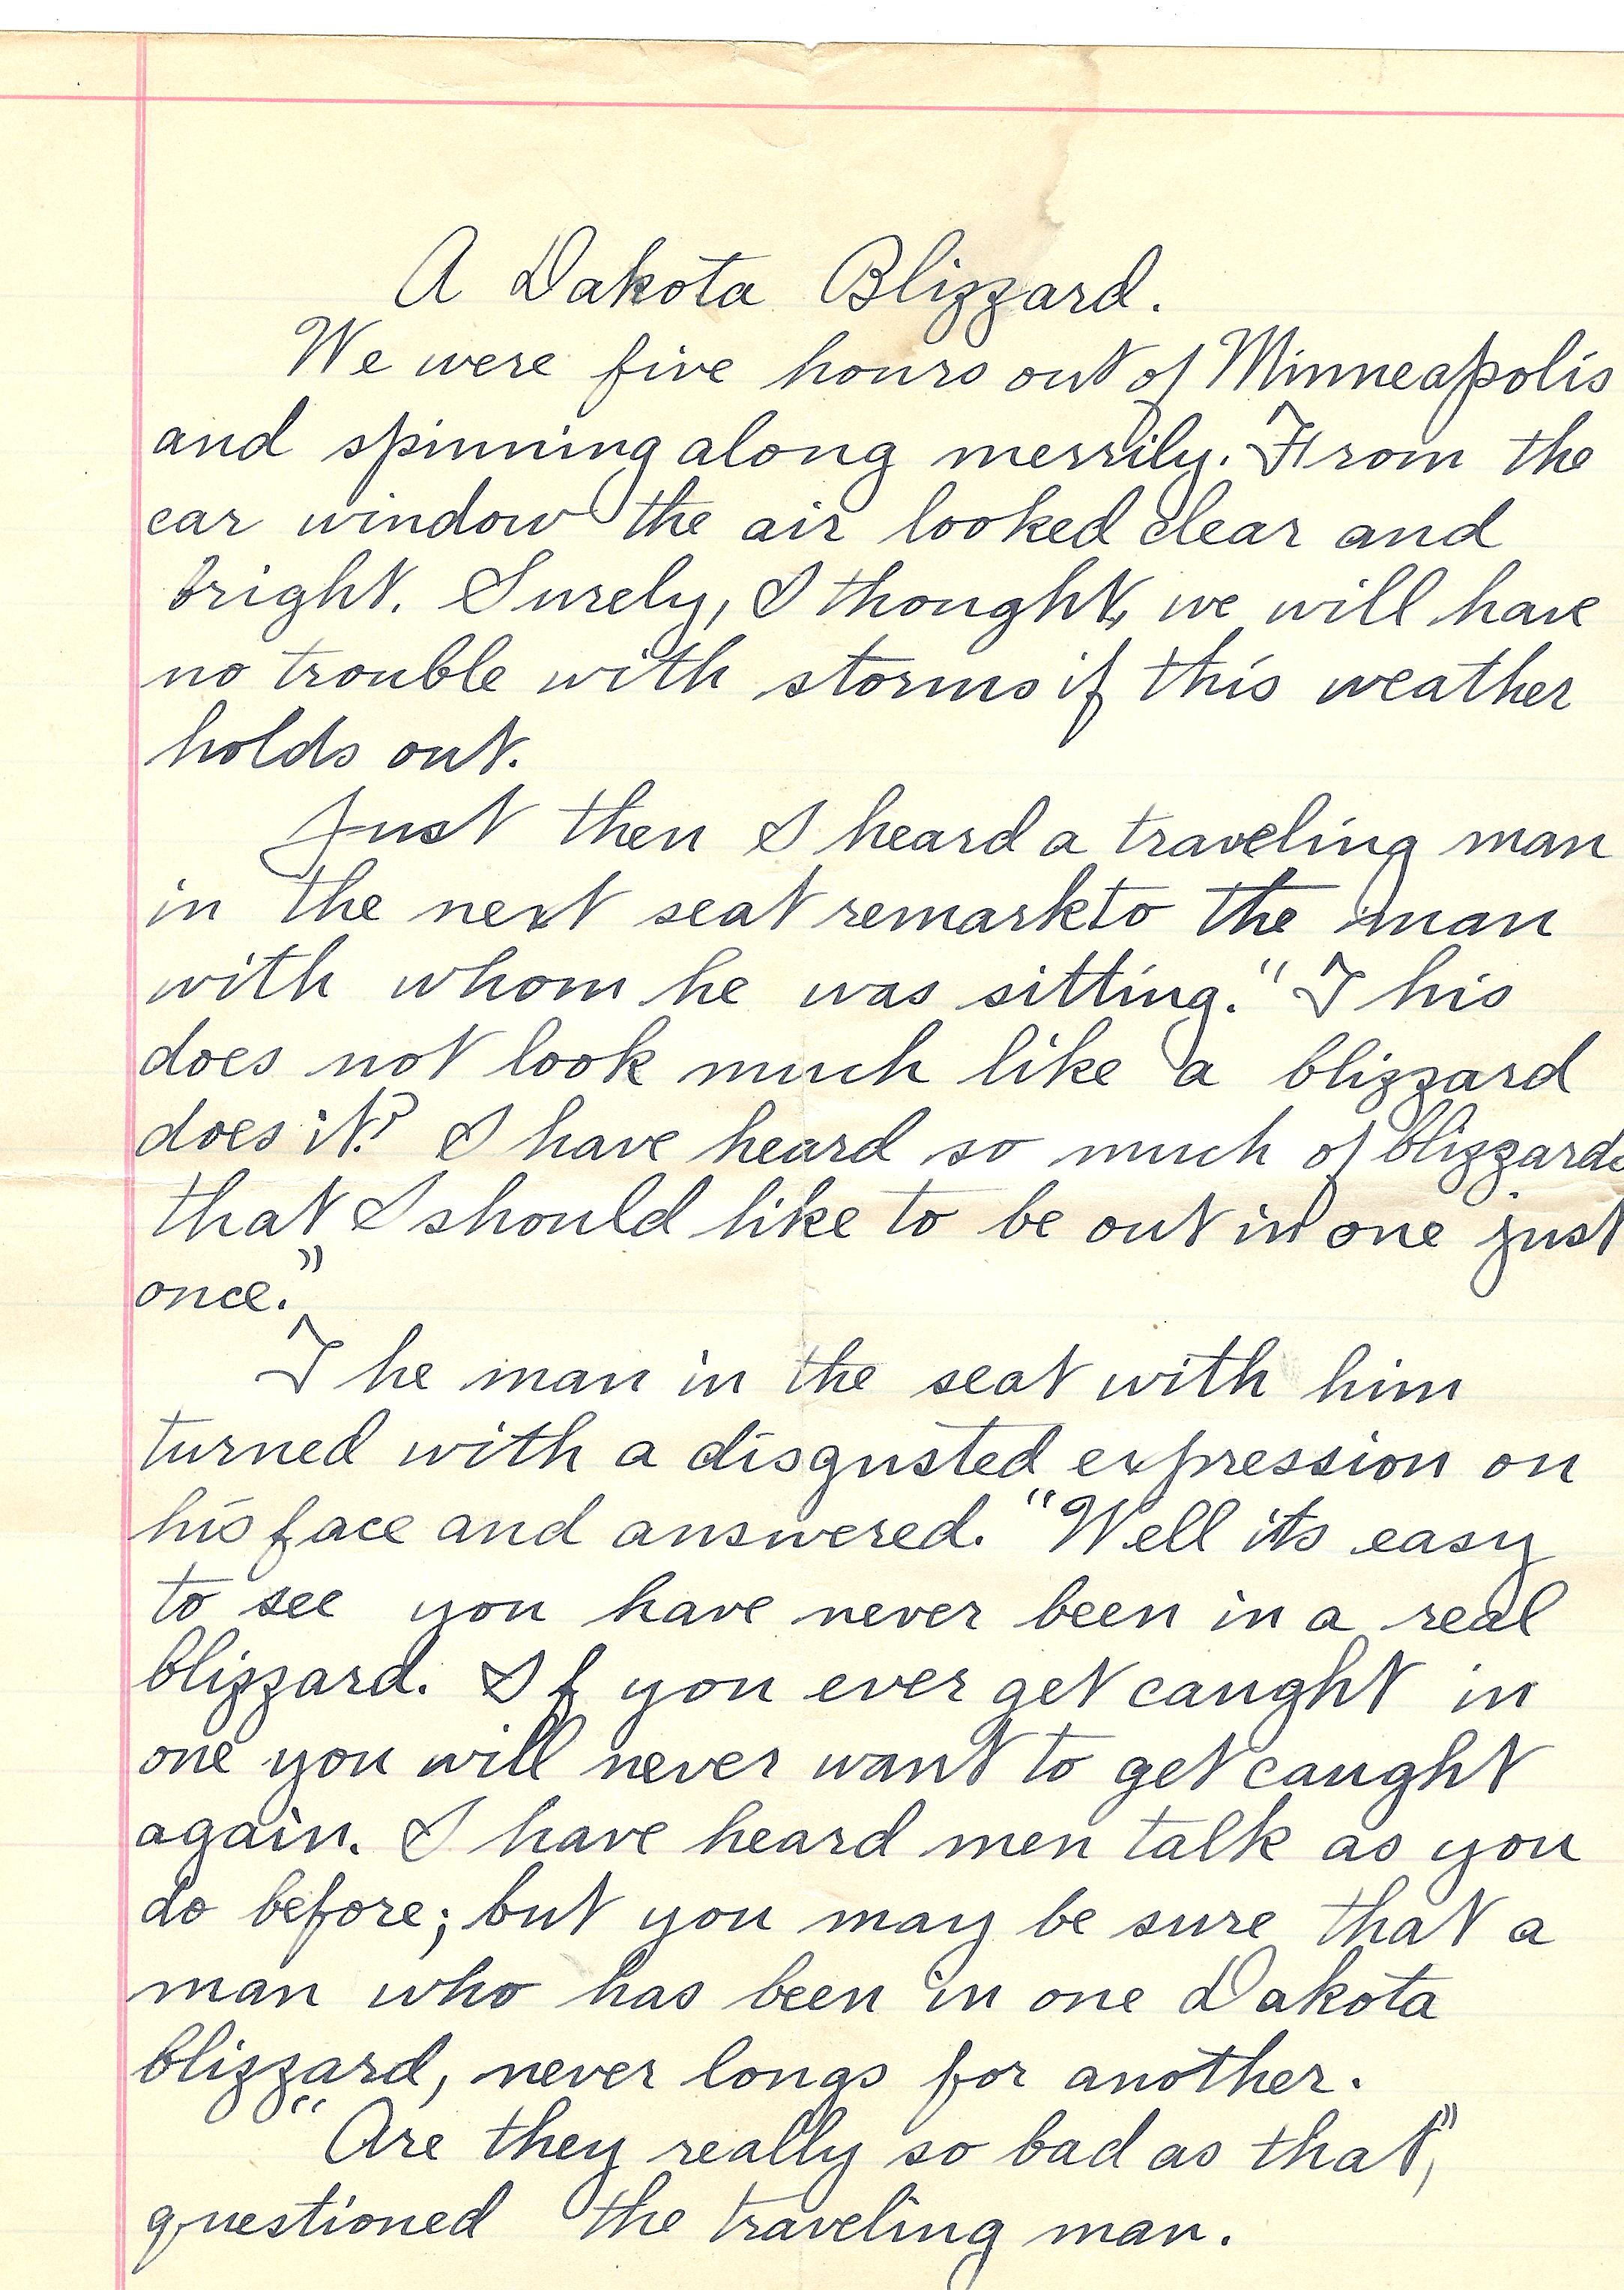 A Dakota Blizzard.
We were five hours out of Minneapolis
and spinning along merrily. From the
car window the air looked clear and
bright. Surely, I thought, we will have
no trouble with storms if this weather
holds out.
Just then I heard a traveling man
in the next seat remark to the man
with whom he was sitting. "This
does not look much like a blizzard
does it? I have heard so much of blizzards
that I should like to be out in one just
once."
The man in the seat with him
turned with a disgusted expression on
his face and answered. "Well its easy
to see you have never been in a real
blizzard. If you ever get caught in
one you will never want to get caught
again. I have heard men talk as you
do before; but you may be sure that a
man who has been in one Dakota
blizzard, never longs for another.
"Are they really so bad as that,"
questioned the traveling man.